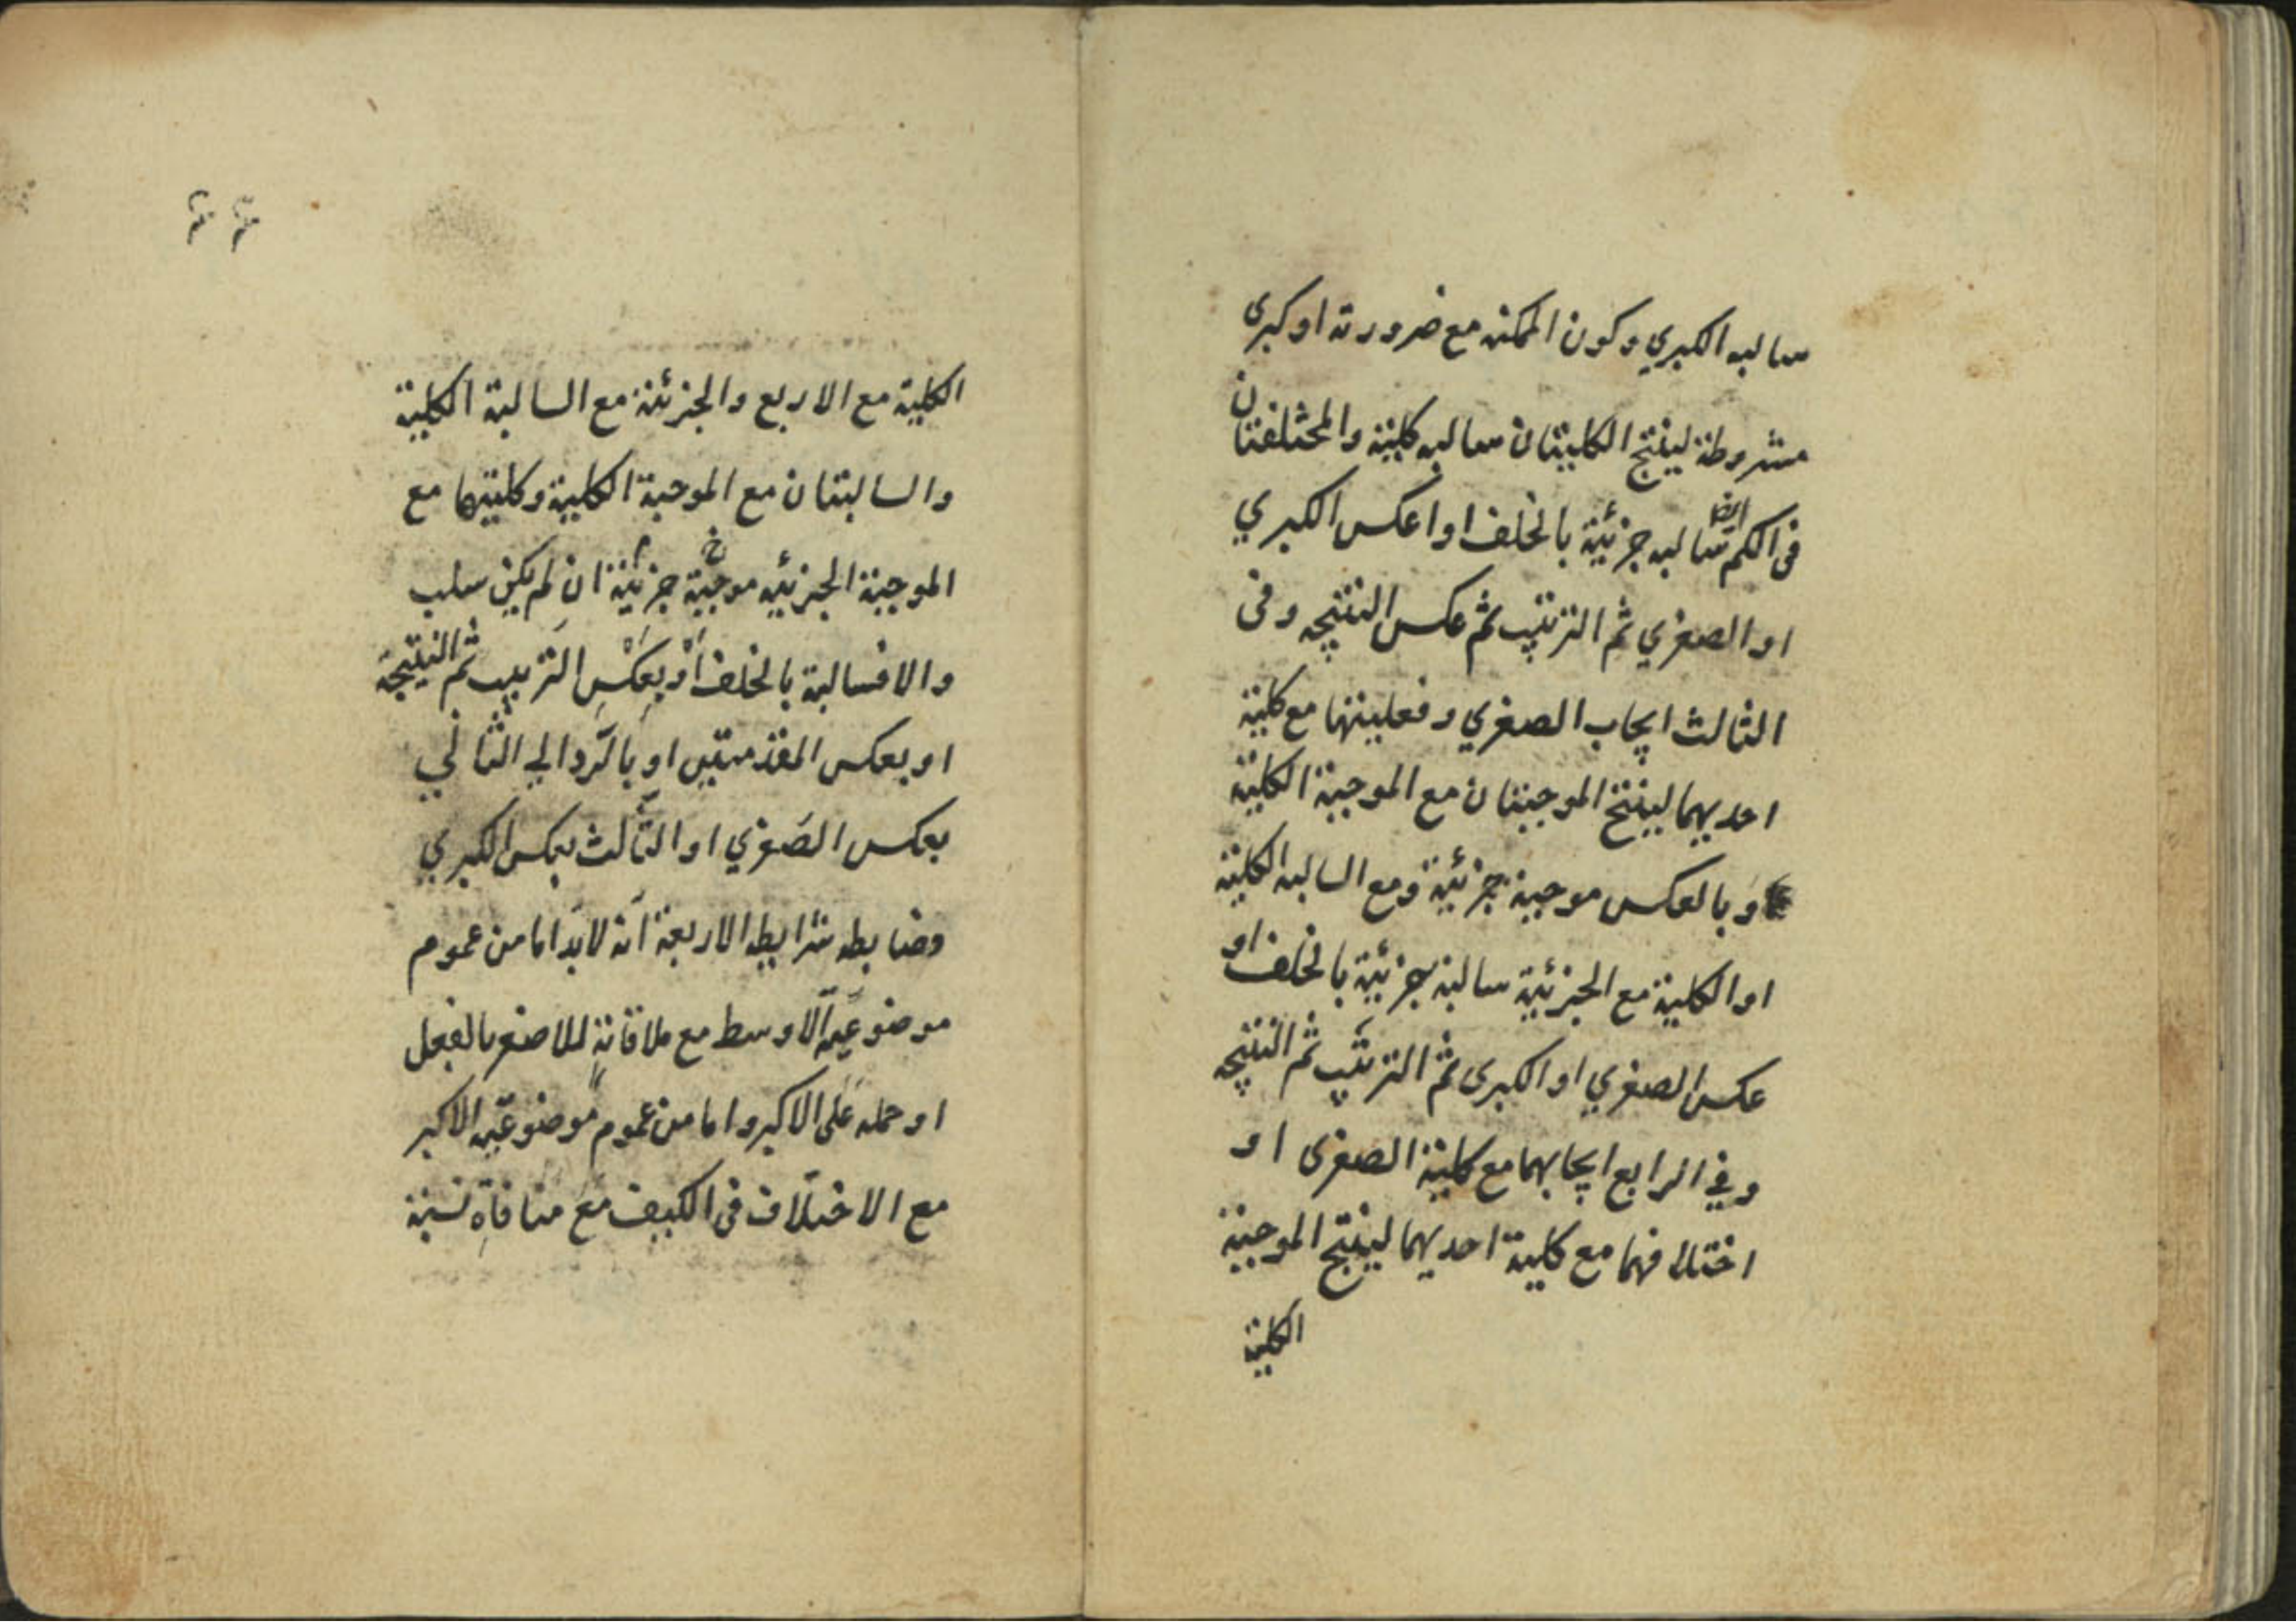 سالبه الكبري وكون الممكنه مع ضرورته او كبرى
مشروطة لينتج الكليتان سالبه كلية والمختلفتان
فى الكم ايضا سالبه جزئية بالخلف او اعكس الكبري
او الصغري ثم الترتيب ثم عكس النتيجه وفى
الثالث ايجاب الصغري وفعليتها مع كلية
احديهما لينتج الموجبتان مع الموجبة الكلية
وبالعكس موجبة جزئية ومع السالبه الكلية
او الكلية مع الجزئية سالبة جزئية بالخلف او
عكس الصغري او الكبرى ثم الترتيب ثم النتيجه
وفي الرابع ايجابهما مع كلية الصغرى او
اختلافهما مع كلية احديهما لينتج الموجبة
الكلية
الكلية مع الاربع والجزئية مع السالبة الكلية
والسالبتان مع الموجبة الكلية وكليتهما مع
الموجبة الجزئيه موجبة جزئية ان لم يكن سلب
والا فسالبة بالخلف أوْ بِعَكْسِ الترتيب ثم النتيجة
او بعكس المقدمتين او بالرّد الي الثاني
بعكس الصَغري او الثّالث بعكس الكبري
وضابطه شرايط الاربعة انّه لابدّ اما من عموم
موضوعيّه الاوسط مع ملاقاتهِ للاصغر بالفعل
او حمله عَلى الاكبر واما من عموم موضوعيّه الاكبر
مع الاختلاف فى الكيف مع منافاةِ نسبة